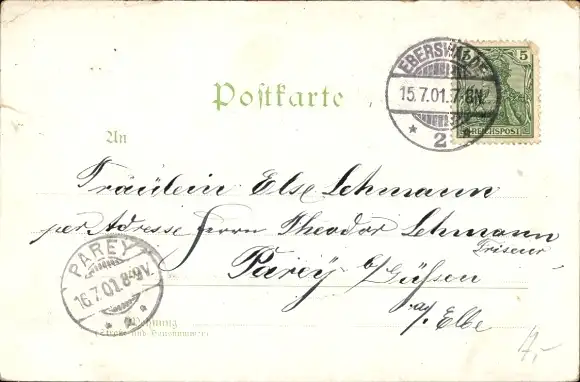 EBERSWALDE
15.7.01.7-8N.
* 2 *
5
REICHSPOST
Postkarte
An
Fräulein Else Lehmann
per Adresse Herrn Theodor Lehmann
Friseur
Parey b/Güsen
a/ Elbe
PAREY
16.7.01. 8-9V.
Wohnung
(Straße und Hausnummer)
4,-